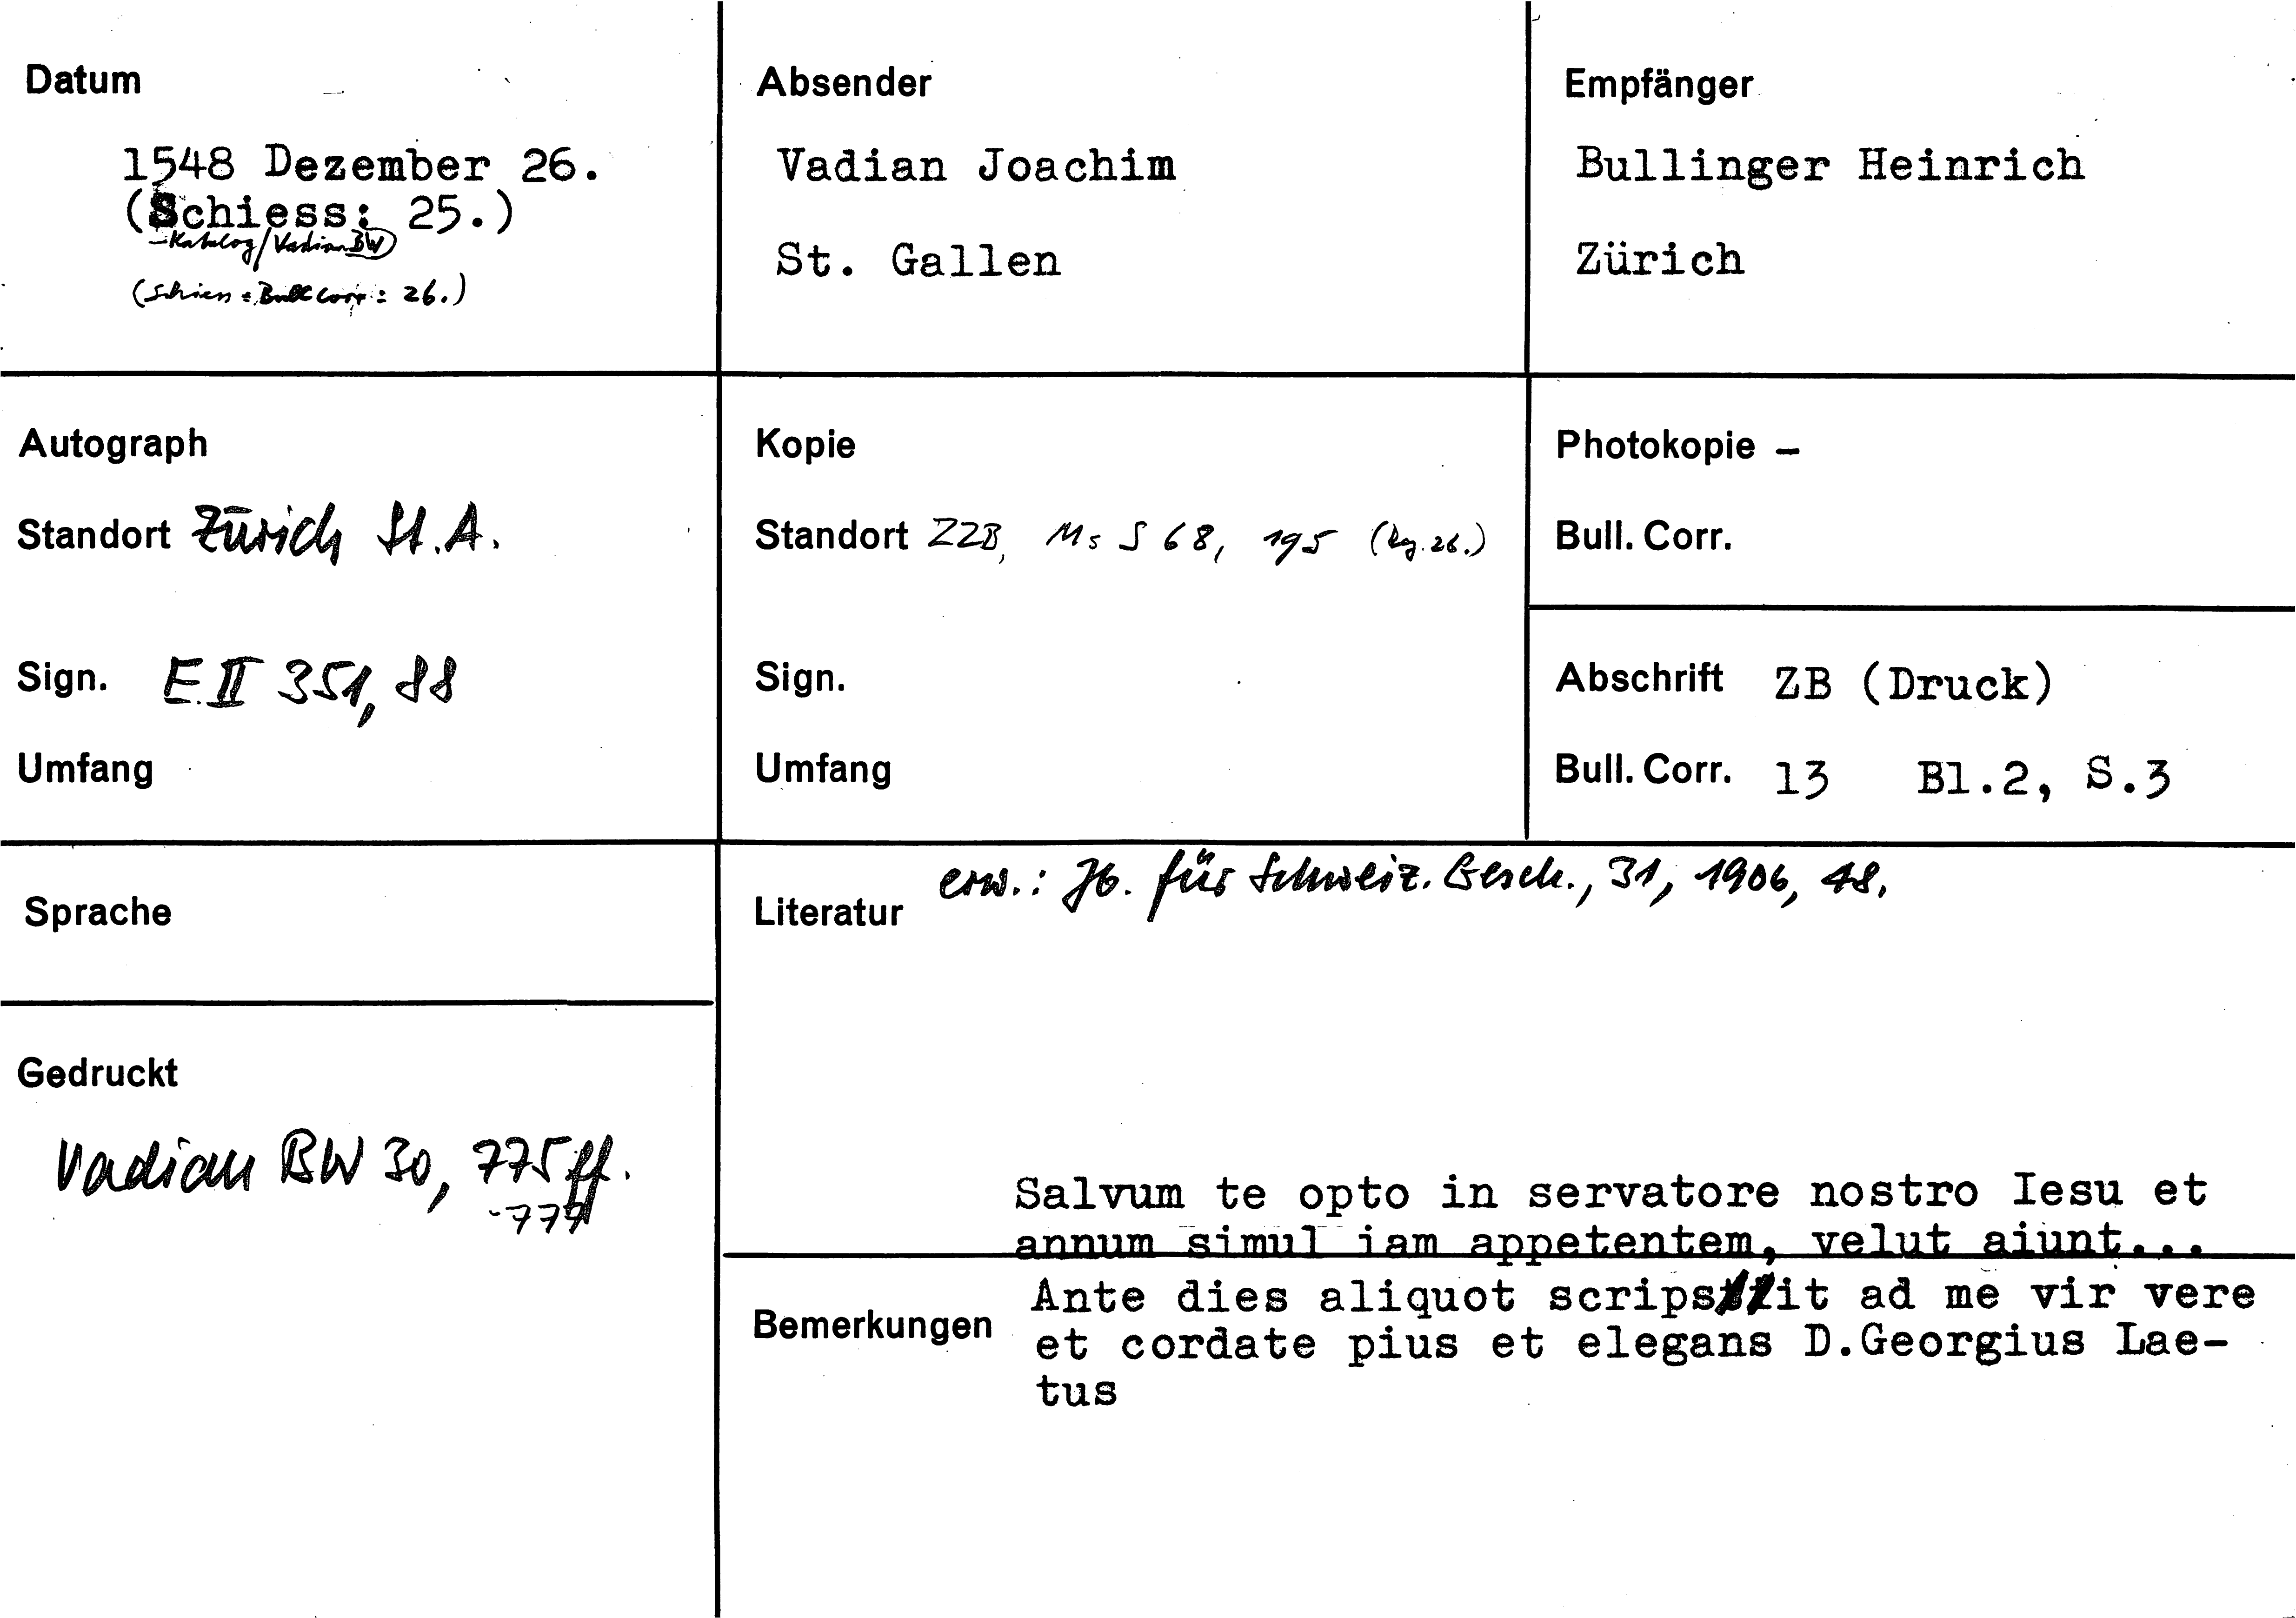 Datum
1548 Dezember 26.
(Schiess: 25.)
-Katalog/Vadian BW
(Schiess: Bull Corr: 26.)
Absender
Vadian Joachim
St. Gallen
Empfänger
Bullinger Heinrich
Zürich
Autograph
Standort Zürich St.A.
Sign. E II 351, 88
Umfang
Kopie
Standort ZZB, Ms S 68, 195 (26.)
Sign.
Umfang
Photokopie –
Bull. Corr.
Abschrift ZB (Druck)
Bull. Corr. 13 Bl.2, S.3
Sprache
Gedruckt
Vadian BW 30, 775ff.
-777
Literatur erw.: Jb. für Schweiz. Gesch., 31, 1906, 48.
Salvum te opto in servatore nostro Iesu et
annum simul iam appetentem, velut aiunt...
Bemerkungen
Ante dies aliquot scripsit ad me vir vere
et cordate pius et elegans D.Georgius Lae-
tus